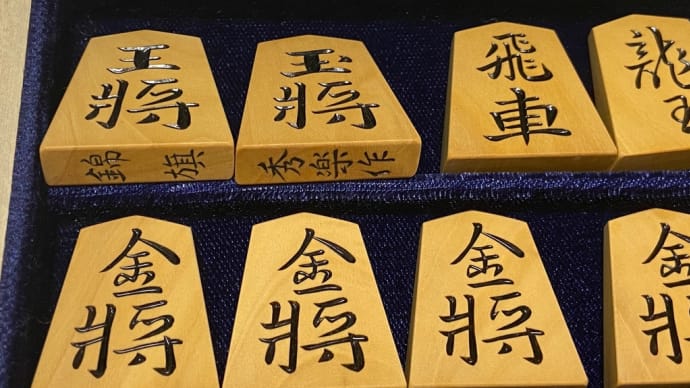 王將
錦旗
玉將
秀樂作
飛車
龍王
金將
金將
金將
金將